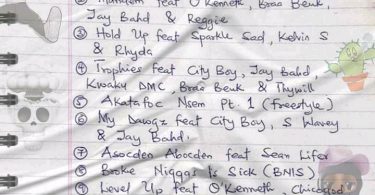 feat O'Kenneth, Braa Benk,
Jay Bahd & Reggie
③ Hold Up feat Sparkle Sad, Kelvin S
& Rhyda
④ Trophies feat City Boy, Jay Bahd,
Kwaku DMC, Braa Benk & Thywill
⑤ Akatafoc Nsem Pt. 1 (freestyle)
⑥ My Dawgz feat City Boy, S Wavey
& Jay Bahd.
⑦ Asocden Abocden feat Sean Lifer
⑧ Broke Niggas Is Sick (BNIS).
⑨ Level Up feat O'Kenneth Chicogod